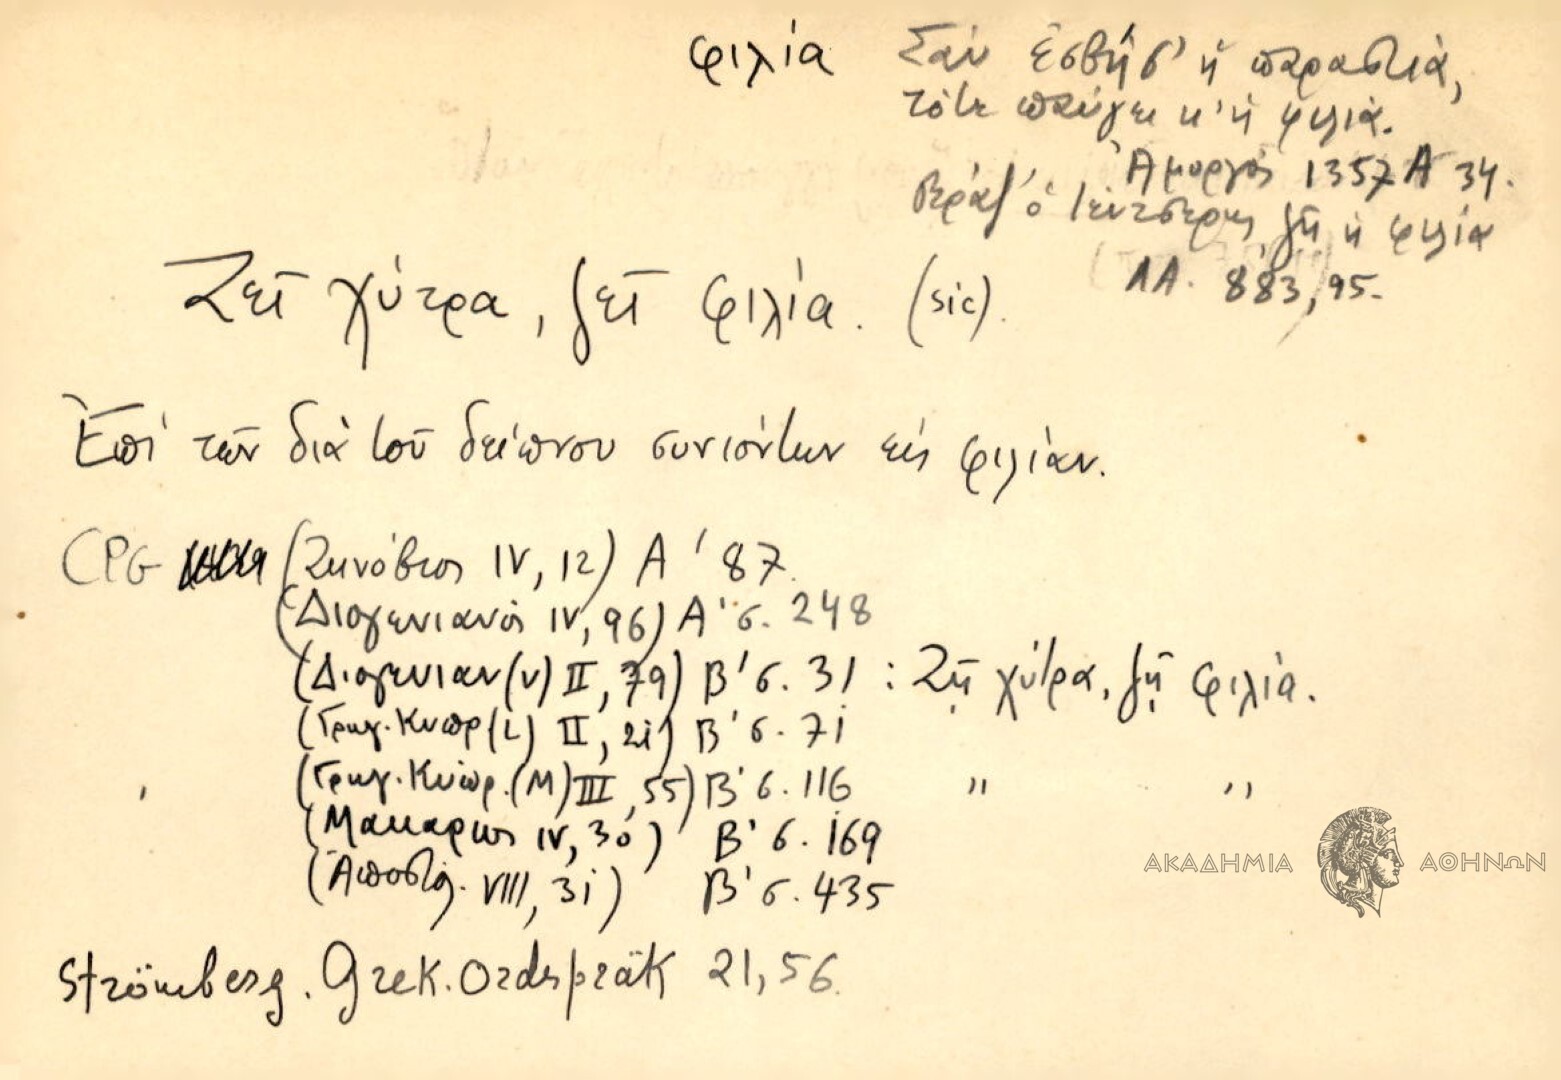 φιλία
Σὰν ἐσβήσ' ἡ παραστιά,
τότε παύγει κ' ἡ φιλιά.
Ἀμοργός 1357 Α 34.
Βράζ' ὁ τέντζερης, ζῆ ἡ φιλία
ΛΑ. 883, 95.
Ζεῖ χύτρα, ζεῖ φιλία. (sic).
Ἐπὶ τῶν διὰ τοῦ δείπνου συνιόντων εἰς φιλίαν.
CPG (Ζηνόβιος IV, 12) Α' 87.
(Διογενιανός IV, 96) Α' σ. 248
(Διογενιαν(v) II, 79) Β' σ. 31 : Ζῇ χύτρα, ζῇ φιλία.
(Γρηγ. Κυπρ(L) II, 21) Β' σ. 71
(Γρηγ. Κύπρ. (M) III, 55) Β' σ. 116 " "
(Μακαριος IV, 30) Β' σ. 169
(Ἀποστόλ. VIII, 31) Β' σ. 435
Strömberg. Grek. Ordspräk 21, 56.
ΑΚΑΔΗΜΙΑ ΑΘΗΝΩΝ